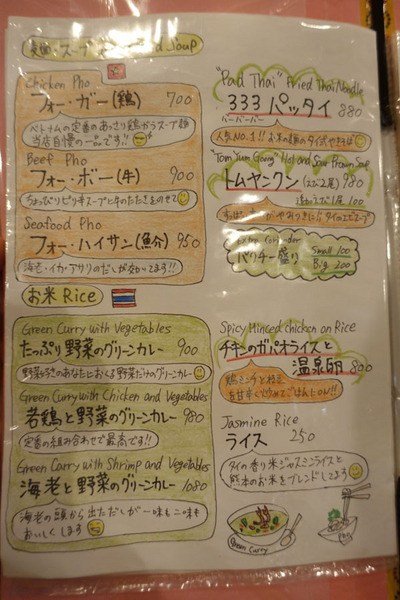 Soup
Chicken Pho
フォー・ガー(鶏) 700
ベトナムの定番のあっさり鶏がらスープ麺
当店自慢の一品です!!
Beef Pho
フォー・ボー(牛) 900
ちょっぴりピリ辛スープに牛のたたきをのせて
Seafood Pho
フォー・ハイサン(魚介) 950
海老・イカ・アサリのだしが交わってます!!
"Pad Thai" Fried Thai Noodle
333 パッタイ 880
バーバーバー
人気NO.1!! お米の麺のタイ式やきそば
"Tom Yum Goong" Hot and Sour Prawn Soup
トムヤンクン (えび2尾) 980
タイのエビスープ
Extra Coriander
パクチー盛り
Small 100
Big 200
お米 Rice
Green Curry with Vegetables
たっぷり野菜のグリーンカレー 900
野菜好きのあなたにおくる野菜だけのグリーンカレー
Green Curry with Chicken and Vegetables
若鶏と野菜のグリーンカレー 980
定番の組み合わせで最高です!!
Green Curry with Shrimp and Vegetables
海老と野菜のグリーンカレー 1080
海老の頭から出ただしが一味も二味も
おいしくします
Spicy Minced chicken on Rice
チキンのガパオライスと
温泉卵 800
鶏ミンチと
を甘辛く炒めてごはんにON!!
Jasmine Rice
ライス 250
タイの香り米ジャスミンライスと
熊本のお米をブレンドしてます
Green Curry
Pho